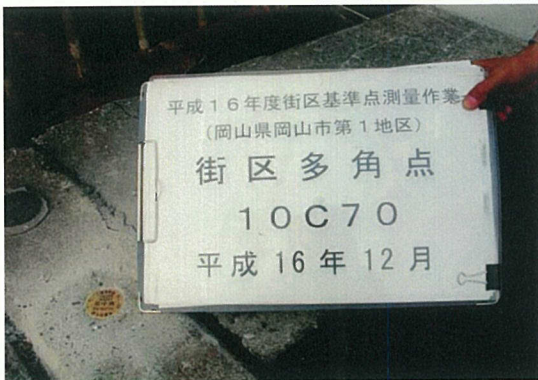 平成16年度街区基準点測量作業
(岡山県岡山市第1地区)
街区多角点
10C70
平成16年12月